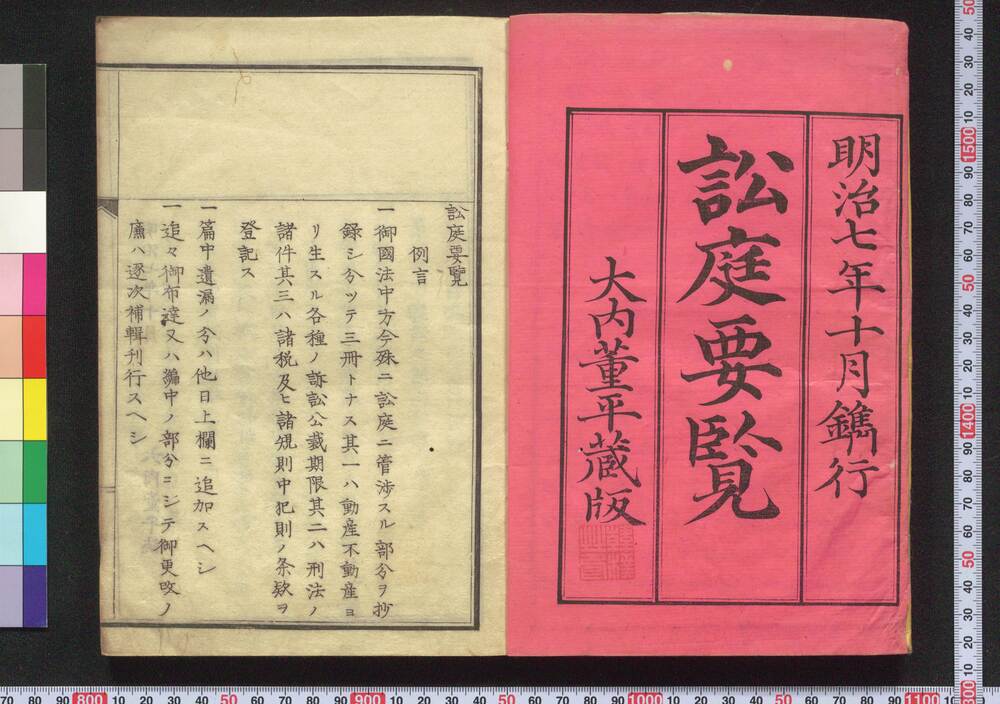 明治七年十月鐫行
訟庭要覧
大内董平蔵版
訟庭要覧
例言
一御國法中方今殊ニ訟庭ニ管渉スル部分ヲ抄
録シ分ツテ三冊トナス其一ハ動産不動産ヨ
リ生スル各種ノ訴訟公裁期限其二ハ刑法ノ
諸件其三ハ諸税及ヒ諸規則中犯則ノ条欵ヲ
登記ス
一篇中遺漏ノ分ハ他日上欄ニ追加スヘシ
一追々御布達又ハ編中ノ部分ニシテ御更改ノ
廉ハ逐次補輯刊行スヘシ